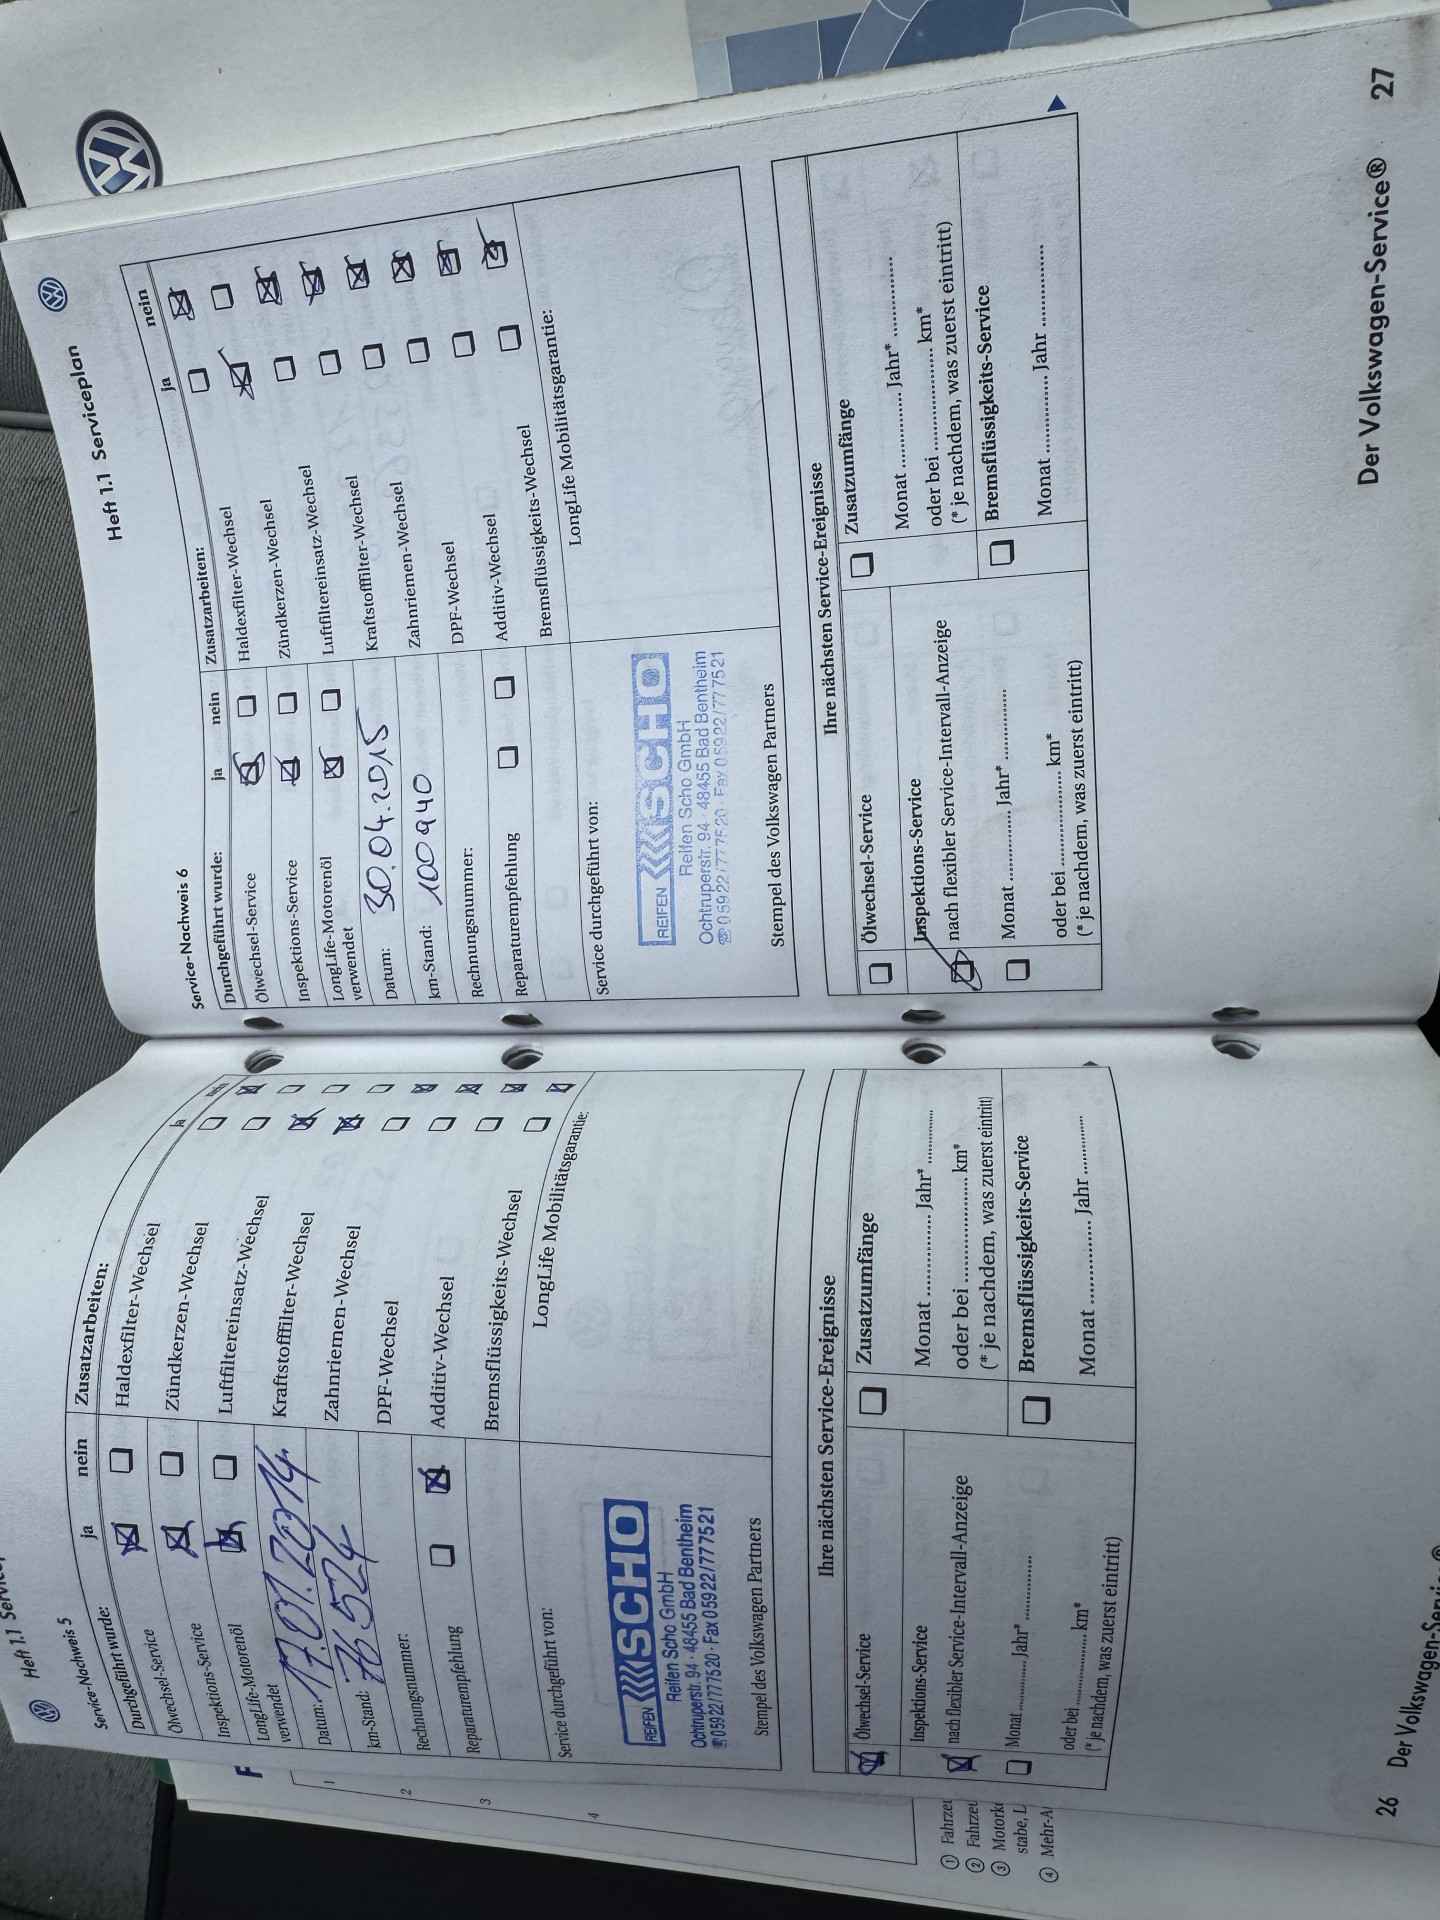 Heft 1.1
Service-Nachweis 5
Durchgeführt wurde:
ja
nein
Ölwechsel-Service
Inspektions-Service
LongLife-Motorenöl
verwendet
Datum: 17.01.2014
km-Stand: 76524
Rechnungsnummer:
Reparaturempfehlung
Zusatzarbeiten:
ja
nein
Haldexfilter-Wechsel
Zündkerzen-Wechsel
Luftfiltereinsatz-Wechsel
Kraftstofffilter-Wechsel
Zahnriemen-Wechsel
DPF-Wechsel
Additiv-Wechsel
Bremsflüssigkeits-Wechsel
Service durchgeführt von:
REIFEN SCHO
Reifen Scho GmbH
Ochtruperstr. 94 · 48455 Bad Bentheim
☎ 05922/777520 · Fax 05922/777521
Stempel des Volkswagen Partners
LongLife Mobilitätsgarantie:
Ihre nächsten Service-Ereignisse
Ölwechsel-Service
Inspektions-Service
nach flexibler Service-Intervall-Anzeige
Monat ............ Jahr* ...............
oder bei ..................... km*
(* je nachdem, was zuerst eintritt)
Zusatzumfänge
Monat ............... Jahr* ...............
oder bei ..................... km*
(* je nachdem, was zuerst eintritt)
Bremsflüssigkeits-Service
Monat ............... Jahr ...............
26 Der Volkswagen-Service®
Heft 1.1 Serviceplan
Service-Nachweis 6
Durchgeführt wurde:
ja
nein
Ölwechsel-Service
Inspektions-Service
LongLife-Motorenöl
verwendet
Datum: 30.04.2015
km-Stand: 100940
Rechnungsnummer:
Reparaturempfehlung
Zusatzarbeiten:
ja
nein
Haldexfilter-Wechsel
Zündkerzen-Wechsel
Luftfiltereinsatz-Wechsel
Kraftstofffilter-Wechsel
Zahnriemen-Wechsel
DPF-Wechsel
Additiv-Wechsel
Bremsflüssigkeits-Wechsel
Service durchgeführt von:
REIFEN SCHO
Reifen Scho GmbH
Ochtruperstr. 94 · 48455 Bad Bentheim
☎ 05922/777520 · Fax 05922/777521
Stempel des Volkswagen Partners
LongLife Mobilitätsgarantie:
Ihre nächsten Service-Ereignisse
Ölwechsel-Service
Inspektions-Service
nach flexibler Service-Intervall-Anzeige
Monat ............... Jahr* ...............
oder bei ..................... km*
(* je nachdem, was zuerst eintritt)
Zusatzumfänge
Monat ............... Jahr* ...............
oder bei ..................... km*
(* je nachdem, was zuerst eintritt)
Bremsflüssigkeits-Service
Monat ............... Jahr ...............
Der Volkswagen-Service® 27
1
2
3
4
① Fahrzeu
② Fahrzeu
③ Motorke
stabe, L
④ Mehr-A